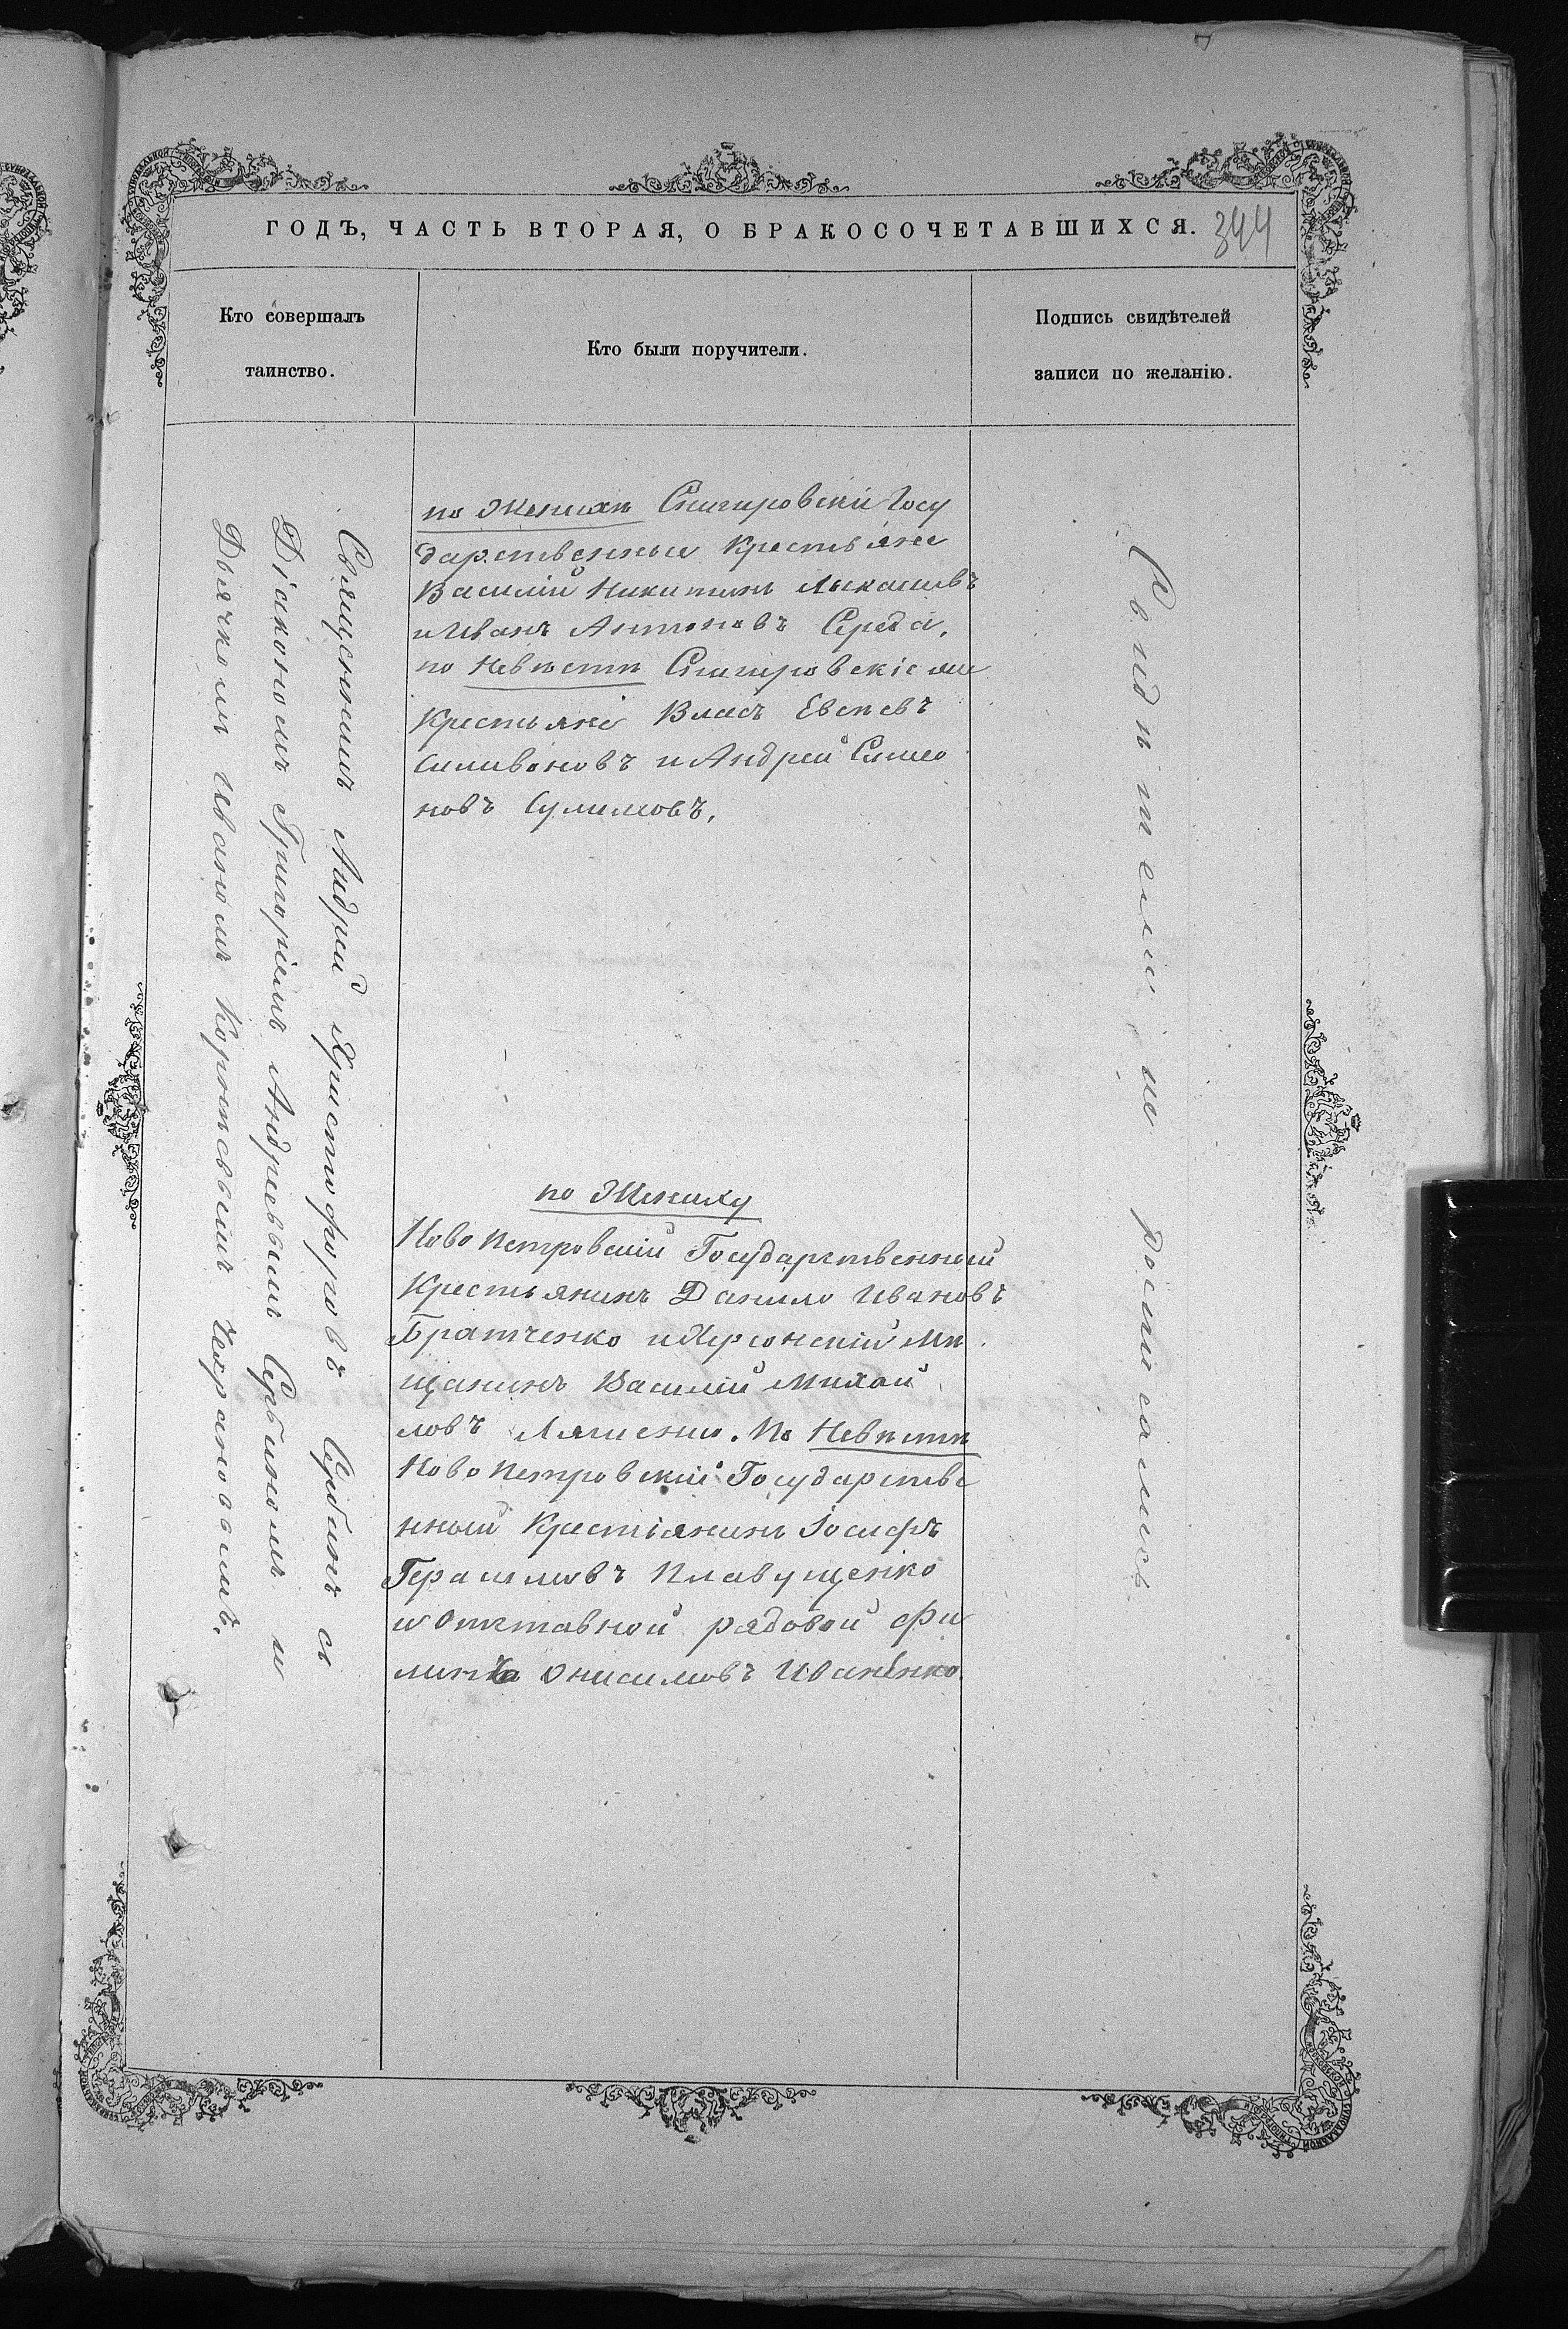 ГОДЪ, ЧАСТЬ ВТОРАЯ, О БРАКОСОЧЕТАВШИХСЯ. 344
Кто совершалъ
таинство.
Кто были поручители.
Подпись свидѣтелей
записи по желанію.
Священникъ Андрей Христофоровъ Сербинъ съ
Діакономъ Григоріемъ Андреевымъ Сербиномъ и
Дьячкомъ Иваномъ
по Женихѣ Снигировскіи Госу
дарственные Крестьяне
Василій Никитинъ
и Иванъ Антоновъ Середа,
по Невѣстѣ Снигировскіе
Крестьяне Власъ Евсѣевъ
Силивоновъ и Андрей Симео
новъ Сулимовъ,
по Жениху
Новопетровскій Государственный
Крестьянинъ Данило Ивановъ
Братченко и Херсонскій Мѣ
щанинъ Василій Михай
ловъ По Невѣстѣ
Новопетровскій Государстве
нный Крестіянинъ Іосифъ
Герасимовъ Плавущенко
и Отставной рядовой Фи
липъ Онисимовъ Иваненко.
Свидѣтели не росписались